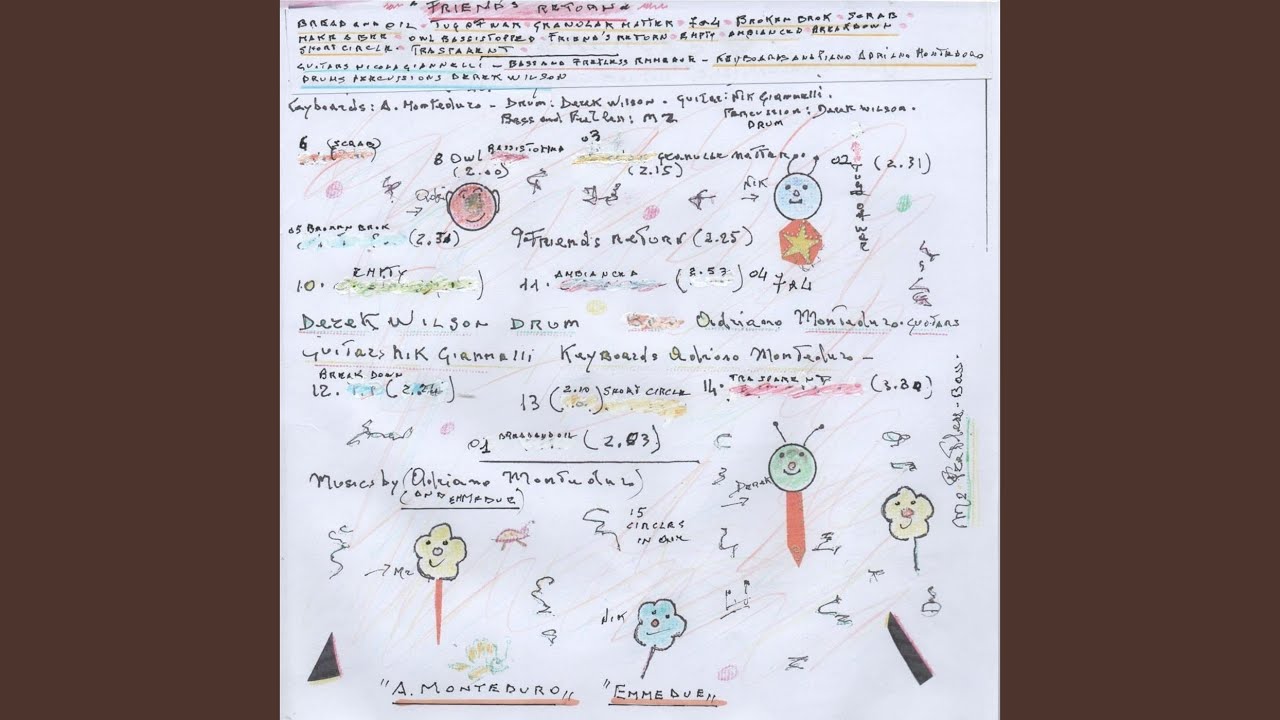 "FRIEND'S RETURN"
BREAD AND OIL - TUG OF WAR - GRANULAR MATTER - 7 2 4 - BROKEN BROK - SCRAB -
OWL BASSISTOPPED - FRIEND'S RETURN - EMPTY - AMBIANCED BREAKDOWN -
SHORT CIRCLE - TRASPAARENT -
GUITARS NICOLA GIANNELLI - BASS AND FRETLESS EMMEDUE - KEYBOARDS AND PIANO ADRIANO MONTEDORO
DRUMS PERCUSSIONS DEREK WILSON
Keyboards: A. Monteduro - Drum: Derek Wilson - Guitar: Nik Giannelli.
Bass and Fretless: M2
Percussion: Derek Wilson.
DRUM
6 (SCRAB)
8 OWL
(2.00)
03
(2.15)
02
(2.31)
TUG OF WAR
NIK
05 BROKEN BROK
9-Friend's Return (2.25)
10. EMPTY
11. AMBIANCED (2.53)
04
Derek Wilson DRUM
Adriano Monteduro. GUITARS
Guitars Nik Giannelli Keyboards Adriano Monteduro -
12. BREAK DOWN (2.24)
13 (2.10) SHORT CIRCLE
14. TRASPARENT
01 BREADANDOIL (2.03)
Musics by (Adriano Monteduro)
(AND EMMEDUE)
DEREK
15
CIRCLES
M2 Fretless-Bass.
M2
NIK
"A. MONTEDURO"
"EMMEDUE"